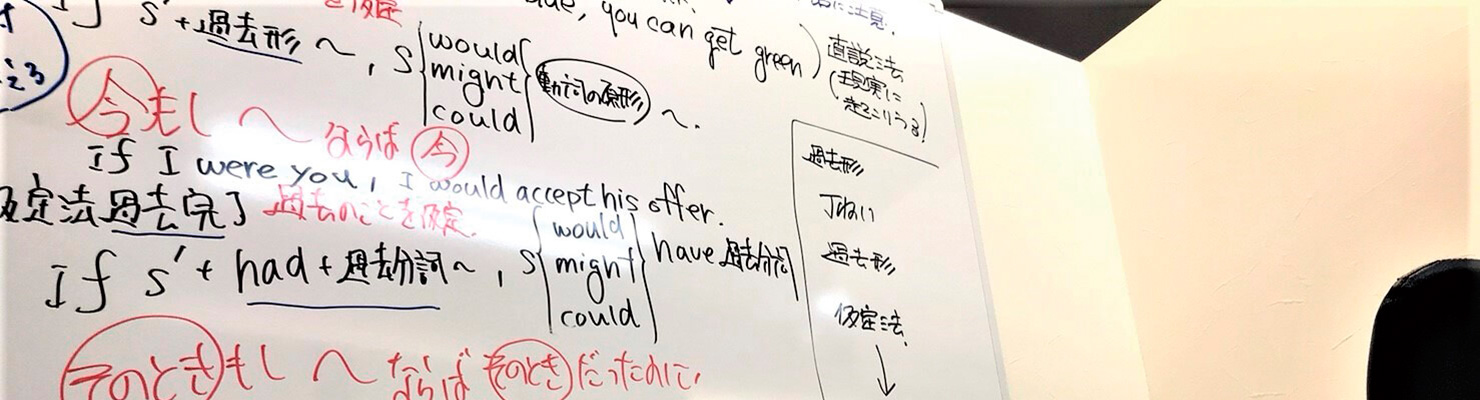 を仮定
you can get green)
に注意.
If S'+過去形 ~, S { would might could } 動詞の原形 ~.
直説法
(現実に
起こりうる)
今もし ~ ならば 今
If I were you, I would accept his offer.
仮定法過去完了 過去のことを仮定.
If S' + had + 過去分詞 ~, S { would might could } have 過去分詞
そのときもし ~ ならば そのとき だったのに,
過去形
丁ねい
過去形
仮定法
↓